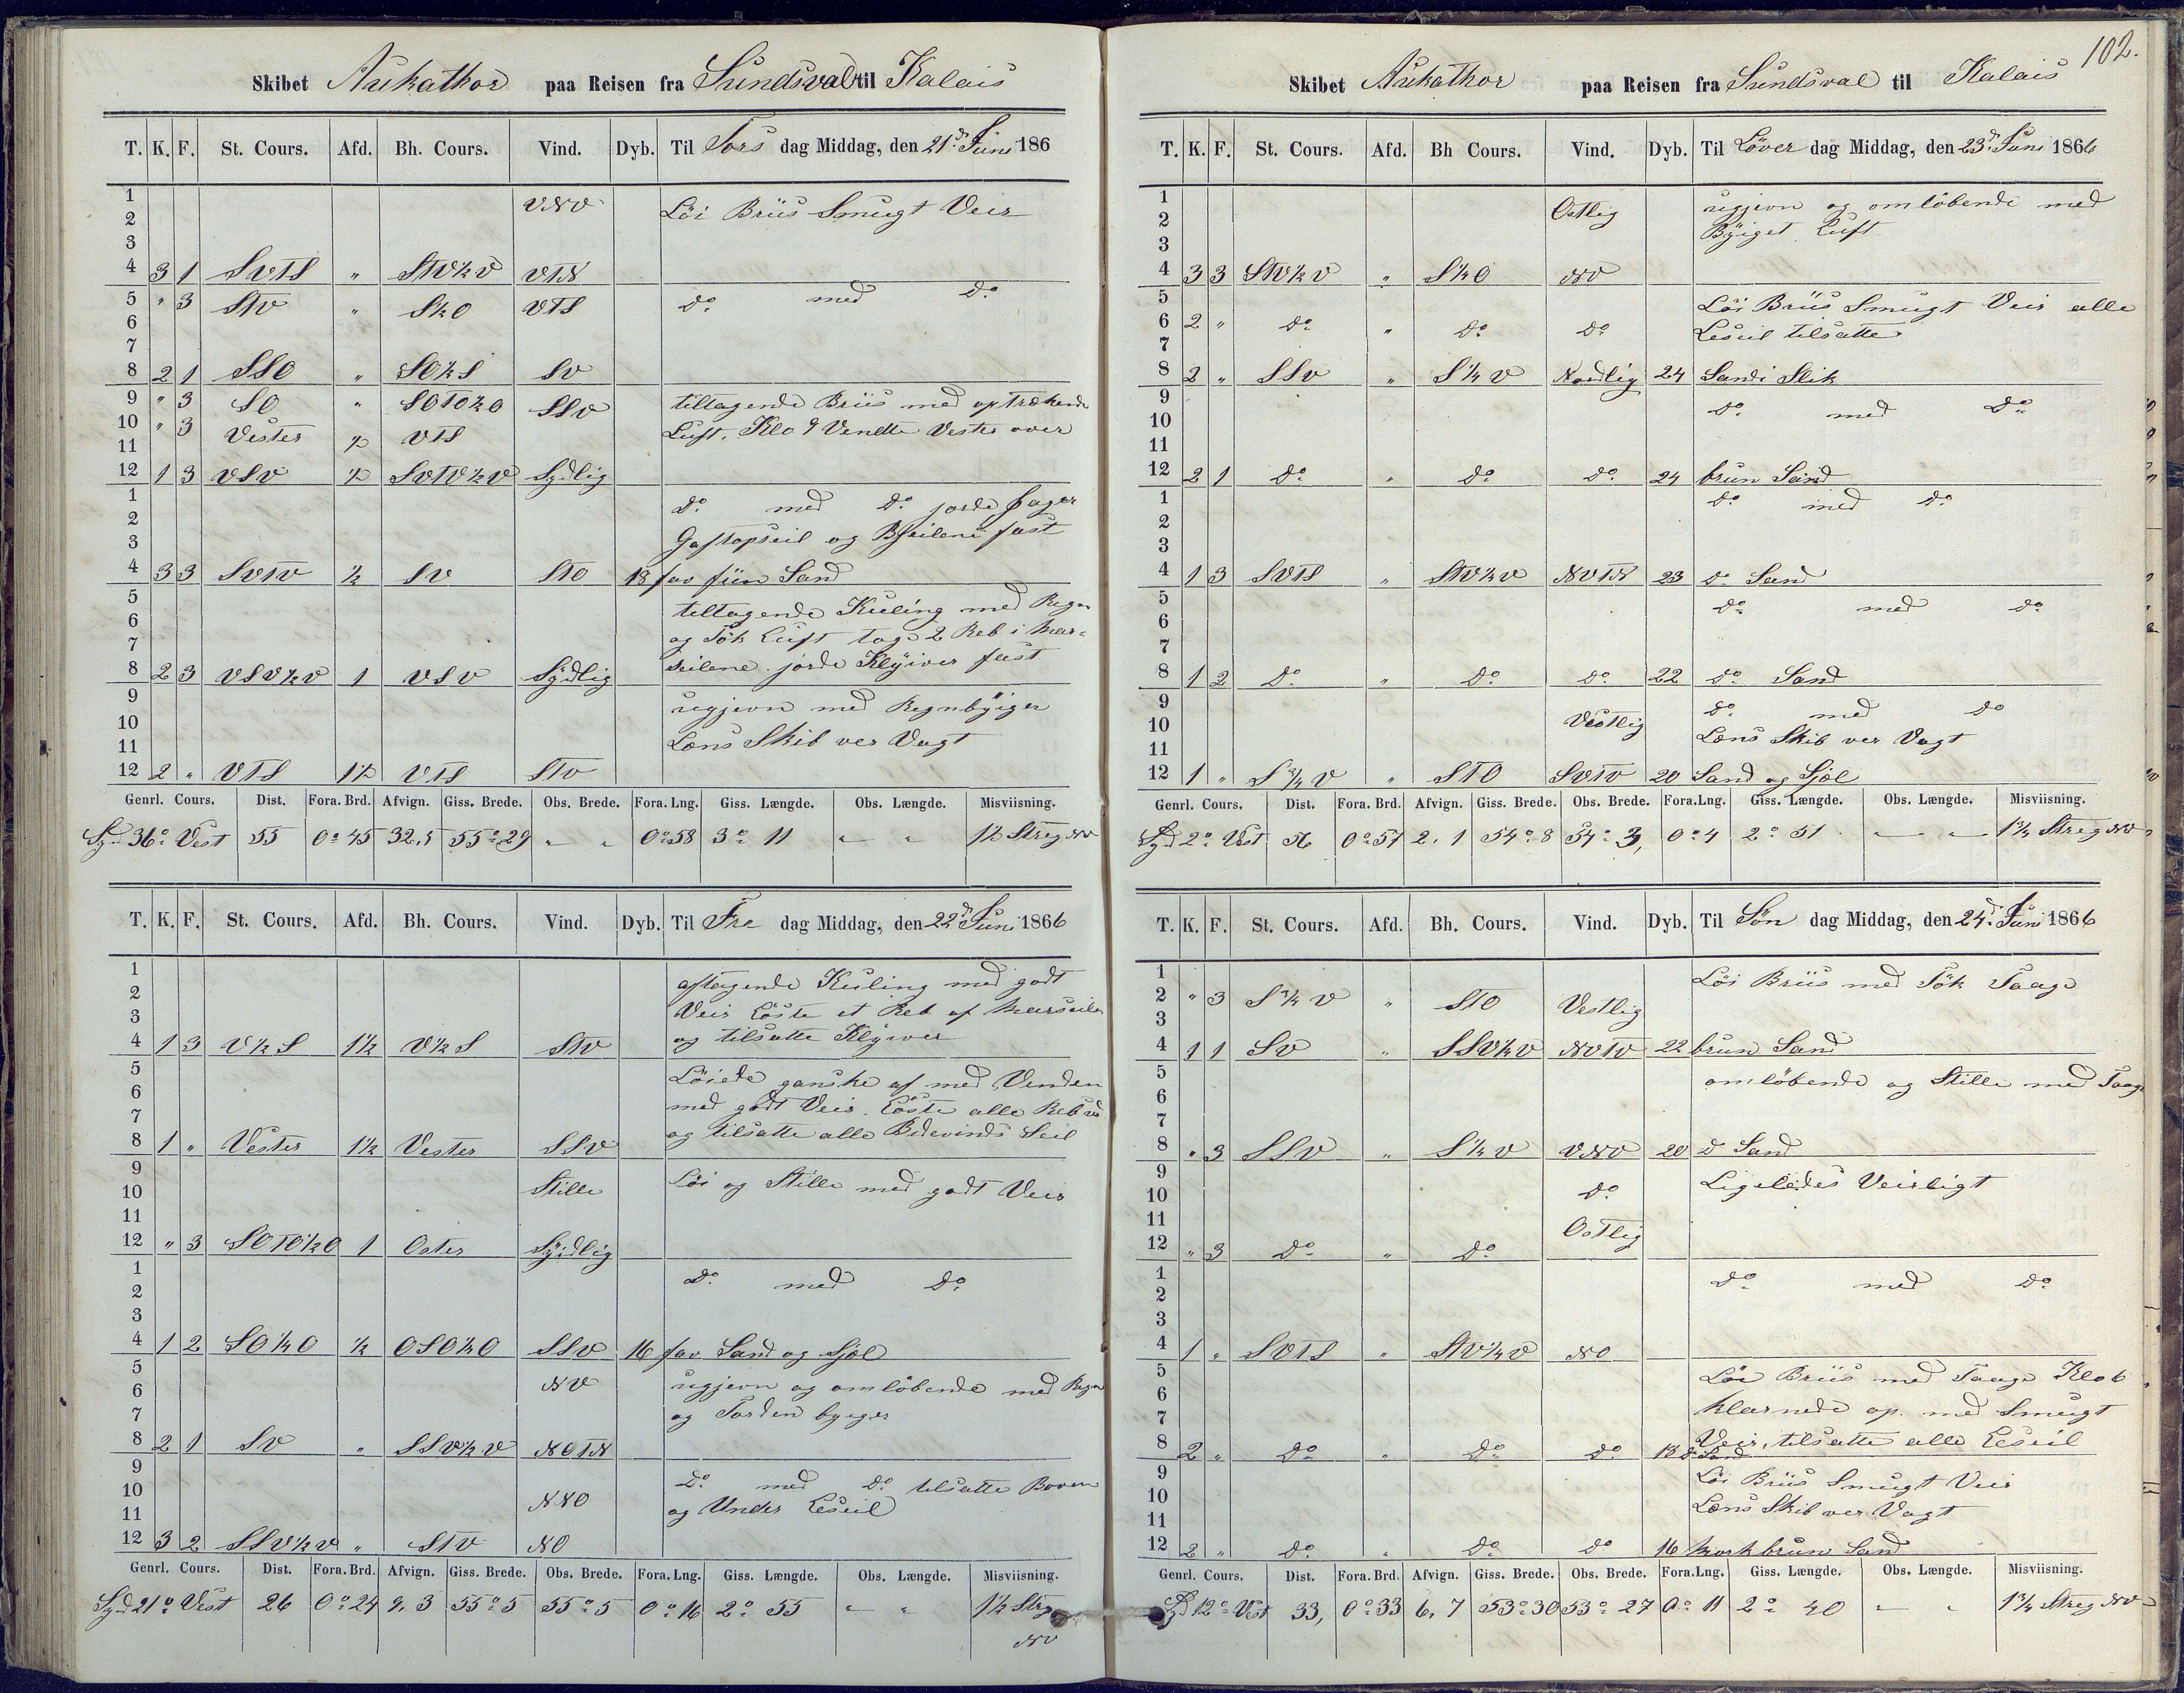 Skibet Aukathor paa Reisen fra Sundsval til Kalais
T. K. F. St. Cours. Afd. Bh. Cours. Vind. Dyb. Til Tors dag Middag, den 21d Juni 186
1 VNV Löi Briis Smugt Veir
2
3
4 3 1 SVTS " STV½V VTN
5 " 3 STV " S½O VTS do med do
6
7
8 2 1 SSO " SO½S SV
9 " 3 SO " SOTO½O SSV tiltagende Briis med optrækende
10 " 3 Vester ½ VTS Luft. Klo 9 Vendte Vester over
11
12 1 3 VSV ½ SVTV½V Sydlig
1 do med do jorde Jager
2 Gaftopseil og Bseilene fast
3
4 3 3 SVTV ½ SV STO 18 fav fiin Sand
5 tiltagende Kuling med Regn
6 og Tök Luft tog 2 Reb i Mar-
7 seilene. jorde Klyiver fast
8 2 3 VSV½V 1 VSV Sydlig
9 ugjevn med Regnbyiger
10 Læns Skib ver Vagt
11
12 2 " VTS 1½ VTS STV
Genrl. Cours. Dist. Fora. Brd. Afvign. Giss. Brede. Obs. Brede. Fora. Lng. Giss. Længde. Obs. Længde. Misviisning.
Syd 36° Vest 55 0° 45 32,5 55° 29 " " 0° 58 3° 11 " " 1½ Streg NV
T. K. F. St. Cours. Afd. Bh. Cours. Vind. Dyb. Til Fre dag Middag, den 22d Juni 1866
1 aftagende Kuling med godt
2 Veir Löste et Reb af Marseile
3 og tilsatte Klyiver
4 1 3 V½S 1½ V½S STV
5 Löiede ganske af med Venden
6 med godt Veir. Löste alle Reb
7 og tilsatte alle Bidevinds Seil
8 1 " Vester 1½ Vester SSV
9 Stille Löi og Stille med godt Veir
10
11
12 " 3 SOTO½O 1 Oster Syidlig
1 do med do
2
3
4 1 2 SO¼O ½ OSO¼O SSV 16 fav Sand og Sjöl
5 NV ugjevn og omlöbende med Regn
6 og Torden byger
7
8 2 1 SV " SSV½V NOTN
9 do med do tilsatte Boven
10 NNO og Under Leseil
11
12 3 2 SSV½V " STV NO
Genrl. Cours. Dist. Fora. Brd. Afvign. Giss. Brede. Obs. Brede. Fora. Lng. Giss. Længde. Obs. Længde. Misviisning.
Syd 21° Vest 26 0° 24 9,3 55° 5 55° 5 0° 16 2° 55 " " 1½ Streg
NV
102.
Skibet Aukathor paa Reisen fra Sundsval til Kalais
T. K. F. St. Cours. Afd. Bh Cours. Vind. Dyb. Til Löver dag Middag, den 23d Juni 1866
1 Ostlig ugjevn og omlöbende med
2 Byiget Luft
3
4 3 3 STV½V " S¼O NV
5 Löi Briis Smugt Veir alle
6 2 " do " do do Leseil tilsatte
7
8 2 " SSV " S¼V Nordlig 24 Sand i Slik
9 do med do
10
11
12 2 1 do " do do 24 brun Sand
1 do med do
2
3
4 1 3 SVTS " STV¼V NVTN 23 do Sand
5 do med do
6
7
8 1 2 do " do do 22 do Sand
9 do med do
10 Vestlig Læns Skib ver Vagt
11
12 1 " S¾V " STO SVTV 20 Sand og Sjöl
Genrl. Cours. Dist. Fora. Brd. Afvign. Giss. Brede. Obs. Brede. Fora. Lng. Giss. Længde. Obs. Længde. Misviisning.
Syd 2° Vest 56 0° 57 2,1 54° 8 54° 3, 0° 4 2° 51 " " 1¾ Streg NV
T. K. F. St. Cours. Afd. Bh. Cours. Vind. Dyb. Til Sön dag Middag, den 24d Juni 1866
1 Löi Briis med Tök Taage
2 " 3 S¾V " STO Vestlig
3
4 1 1 SV " SSV½V NVTV 22 brun Sand
5 omlöbende og Stille med Taage
6
7
8 " 3 SSV " S¼V VNV 20 d Sand
9 Ligeledes Veirligt
10 do
11 Ostlig
12 " 3 do " do
1 do med do
2
3
4 1 " SVTS " STV¼V NO
5 Löi Briis med Taage Klo 6
6 klarnede op. med Smugt
7 Veir, tilsatte alle Leseil
8 2 " do " do do 18 do Sand
9 Löi Briis Smugt Veir
10 Læns Skib ver Vagt
11
12 2 " do " do do 16 Mork brun Sand
Genrl. Cours. Dist. Fora. Brd. Afvign. Giss. Brede. Obs. Brede. Fora. Lng. Giss. Længde. Obs. Længde. Misviisning.
Syd 12° Vest 33, 0° 33 6,7 53° 30 53° 27 0° 11 2° 40 " " 1¾ Streg NV